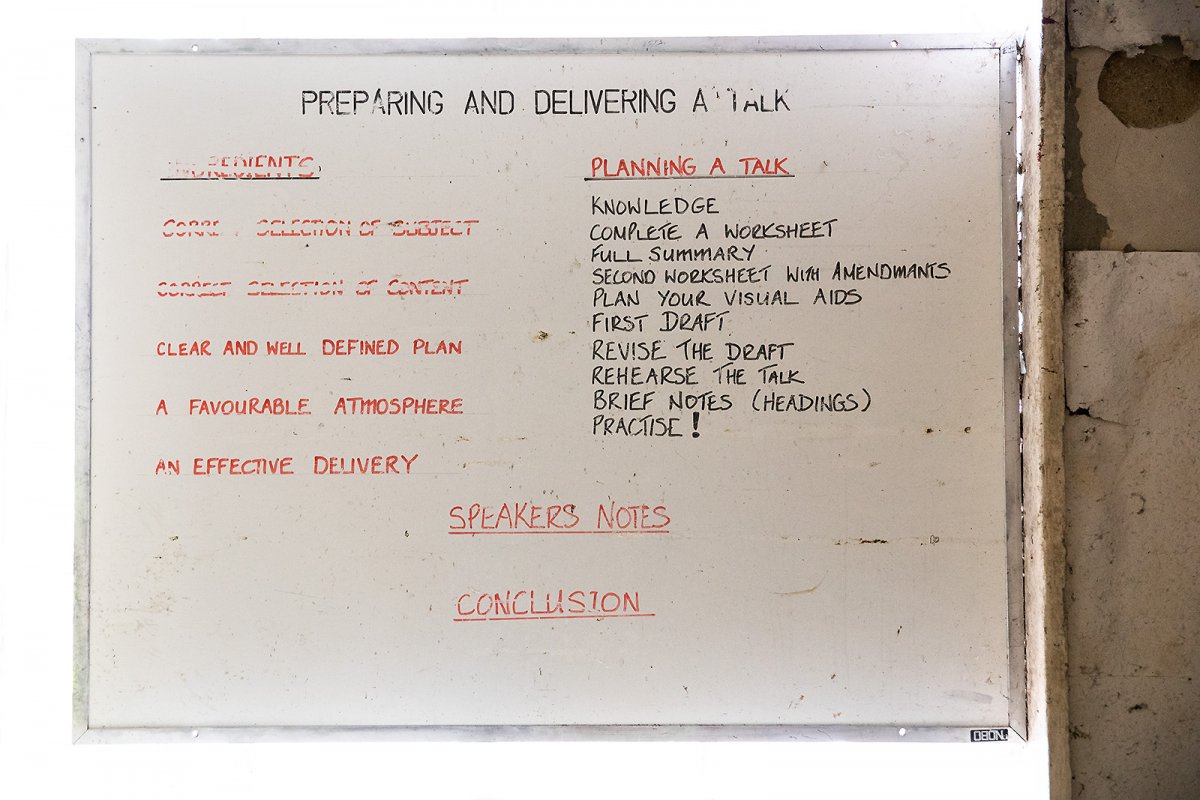 PREPARING AND DELIVERING A TALK
INGREDIENTS
CORRE SELECTION OF SUBJECT
CORRECT SELECTION OF CONTENT
CLEAR AND WELL DEFINED PLAN
A FAVOURABLE ATMOSPHERE
AN EFFECTIVE DELIVERY
PLANNING A TALK
KNOWLEDGE
COMPLETE A WORKSHEET
FULL SUMMARY
SECOND WORKSHEET WITH AMENDMANTS
PLAN YOUR VISUAL AIDS
FIRST DRAFT
REVISE THE DRAFT
REHEARSE THE TALK
BRIEF NOTES (HEADINGS)
PRACTISE!
SPEAKERS NOTES
CONCLUSION